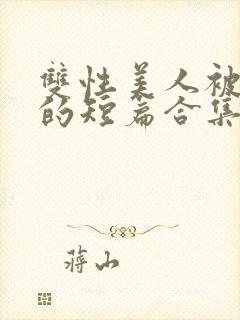 雙性美人被
的短篇合集
蔣山